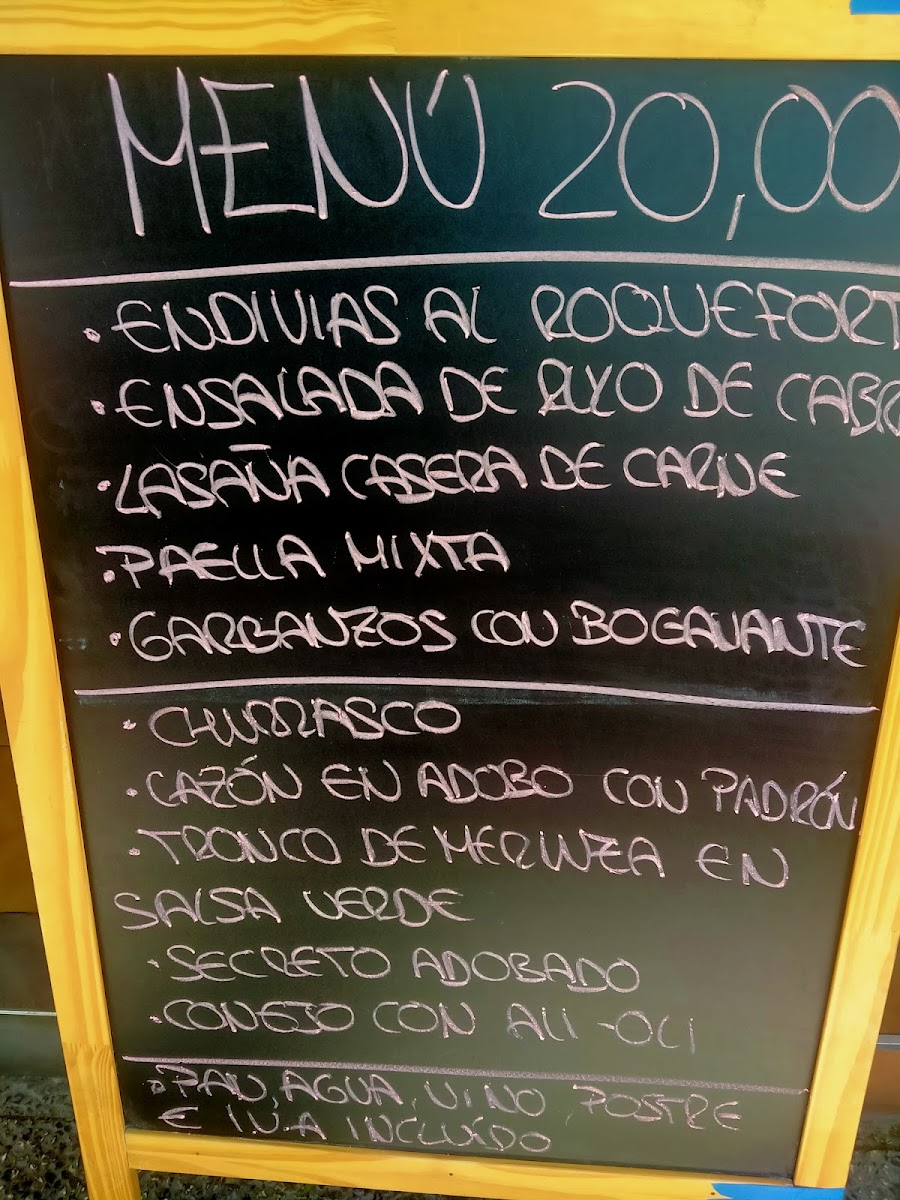 MENÚ 20,00
· ENDIVIAS AL ROQUEFORT
· ENSALADA DE RULO DE CABR
· LASAÑA CASERA DE CARNE
· PAELLA MIXTA
· GARBANZOS CON BOGAVANTE
· CHURRASCO
· CAZÓN EN ADOBO CON PADRÓN
· TRONCO DE MERLUZA EN
SALSA VERDE
· SECRETO ADOBADO
· CONEJO CON ALI-OLI
· PAN, AGUA, VINO, POSTRE
E I.V.A INCLUÍDO